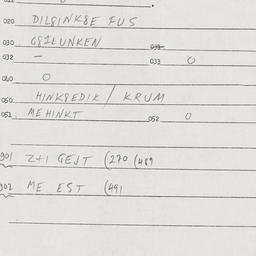 020 DILSINKSE FUS
030 GSILUNKEN 031
032 – 033 0
040 0
050 HINKSEDIK / KRUM
051 MEHINKT 052 0
901 2+1 GEJT (270 (489
902 ME EST (491